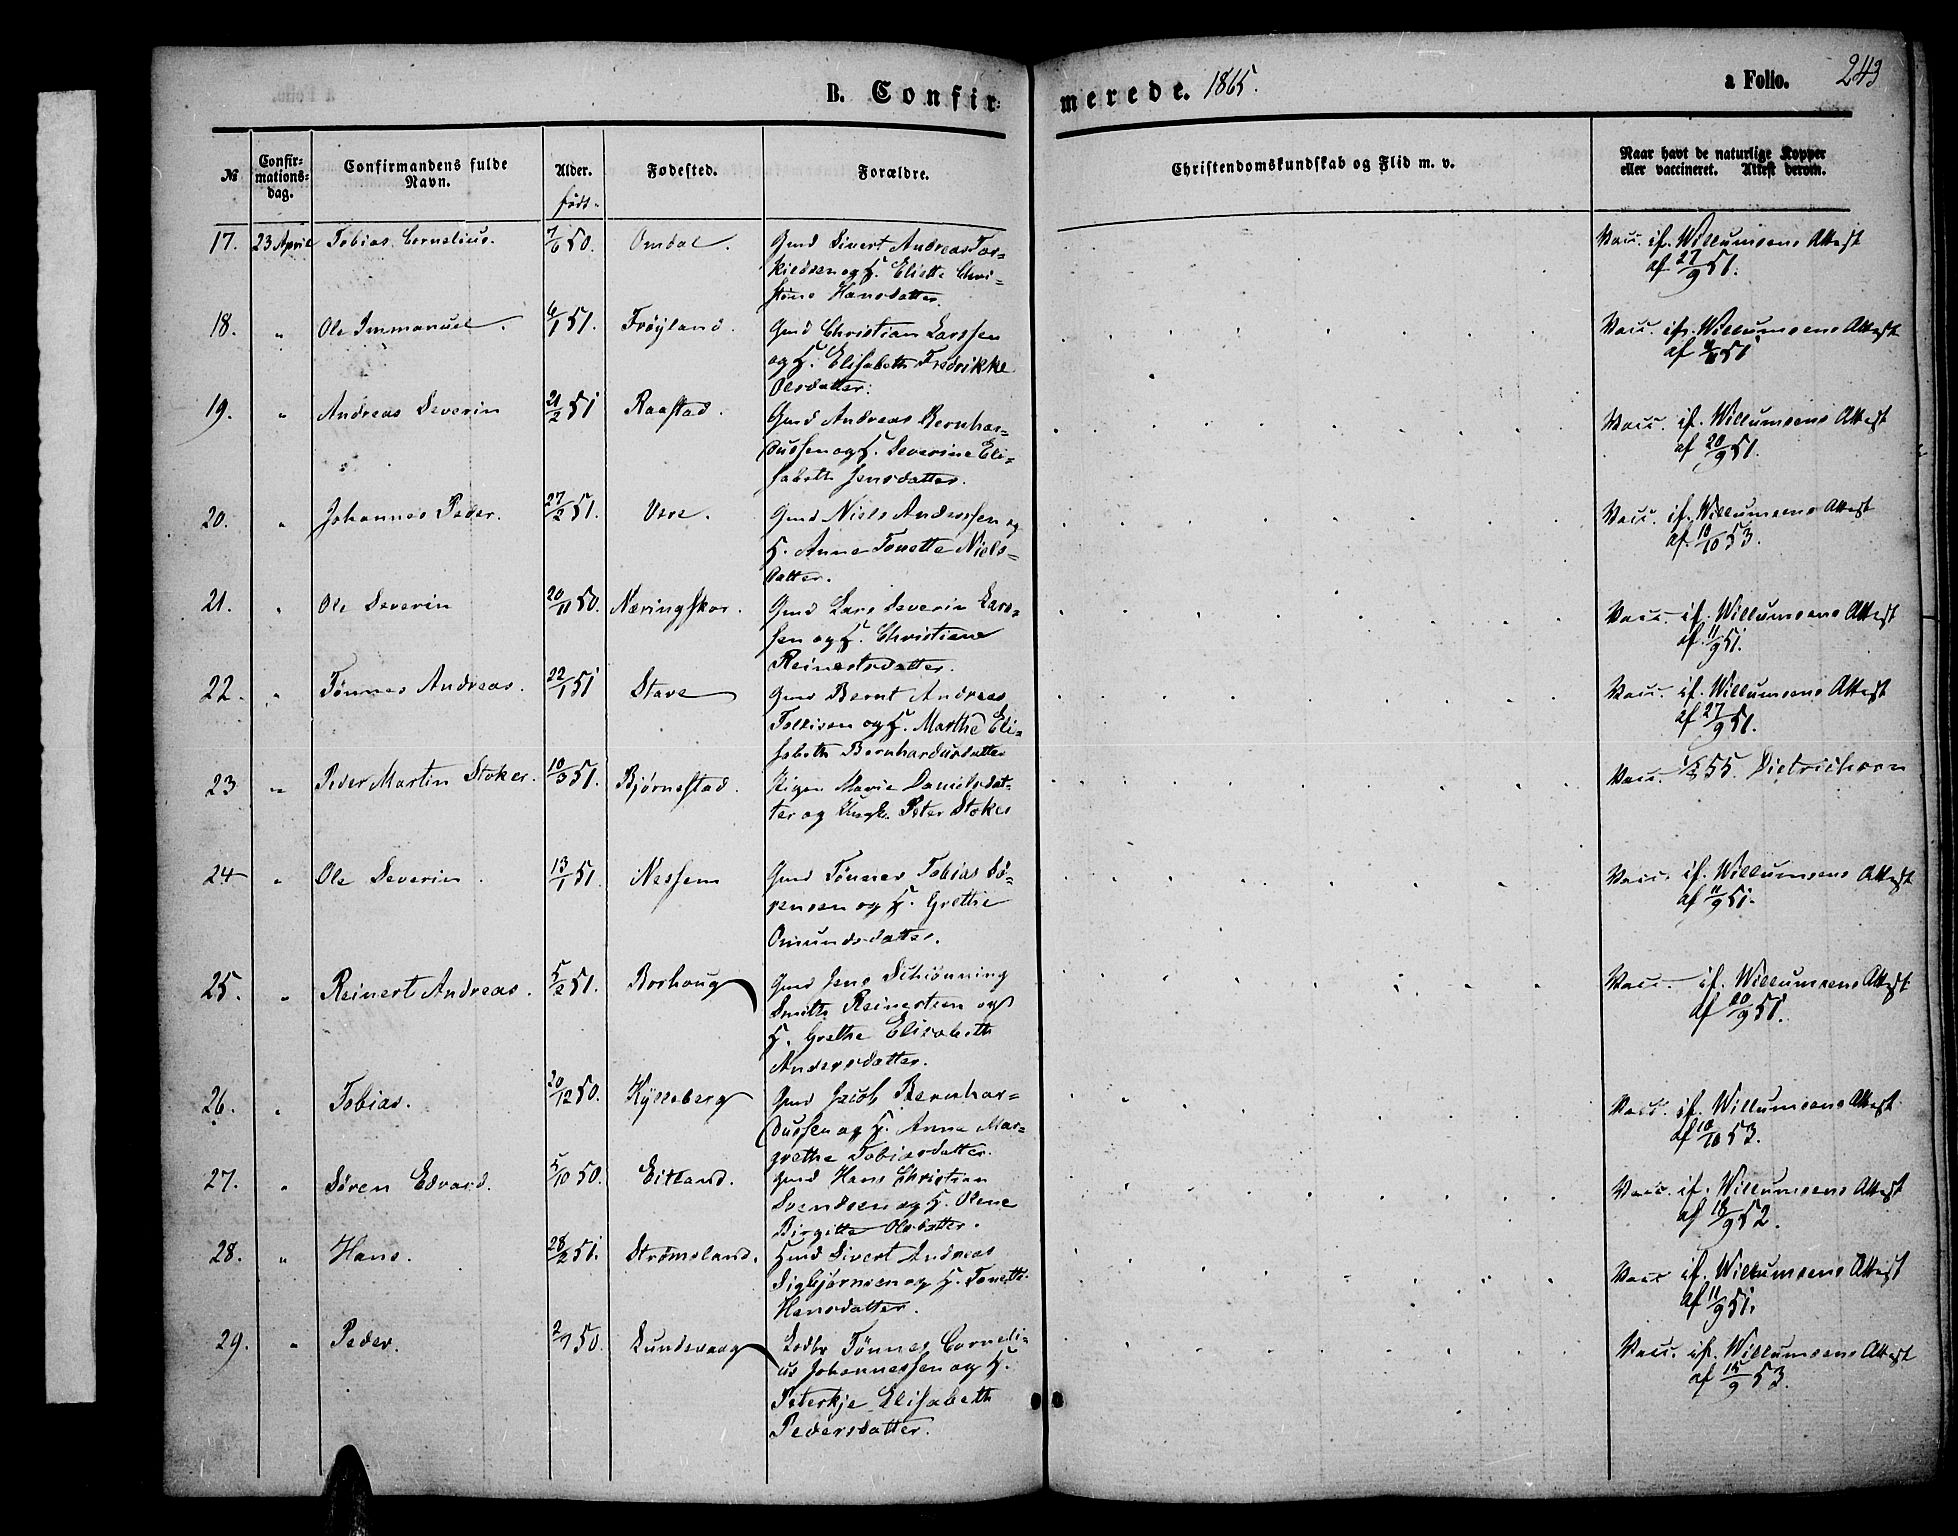 B. Confirmerede. 1865. a Folio. 243
№ Confirmationsdag. Confirmandens fulde Navn. Alder. født. Fødested. Forældre. Christendomskundskab og Flid m. v. Naar havt de naturlige Kopper eller vaccineret. Attest derom.
17. 23 April Tobias Cornelius. 7/6 50. Omdal. Gmd Sivert Andreas Tor- Vacc. if. Willumsens Attest
kildsen og H. Eliette Chri- af 27/9 51.
stine Hansdatter.
18. " Ole Immanuel. 6/1 51. Frøyland. Gmd Christian Larssen Vacc. if. Willumsens Attest
og H. Elisabeth Fredrikke af 51
Olsdatter.
19. " Andreas Severin 21/2 51 Raastad. Gmd Andreas Bernhar- Vacc. if. Willumsens Attest
dussen og H. Severine Eli- af 20/9 51.
sabeth Jensdatter.
20. " Johannes Peder. 27/2 51. Vere. Gmd Niels Anderssen og Vacc. if. Willumsens Attest
H. Anne Tonette Niels- af 10/10 53.
datter.
21. " Ole Severin 20/11 50. Næringskor. Gmd Lars Severin Lars- Vacc. if. Willumsens Attest
sen og H. Christiane af 11/9 51.
Reinertsdatter.
22. " Tønnes Andreas. 22/1 51 Stave Gmd Bernt Andreas Vacc. if. Willumsens Attest
Tollisen og H. Marthe Eli- af 27/9 51.
sabeth Bernhardusdatter
23 " Peder Martin Stoker. 10/3 51. Bjørnestad. Pigen Marie Danielsdat- Vacc. 55. Dietrichson
ter og Ungk. Peter Stoker
24 " Ole Severin. 13/1 51. Nessem Gmd Tønnes Tobias Sø- Vacc. if. Willumsens Attest
rensen og H. Grethe af 11/9 51.
Omundsdatter.
25. " Reinert Andreas. 5/2 51. Borhoug Gmd Jens Schiønning Vacc. if. Willumsens Attest
Smith Reinertsen og af 20/9 51.
H. Grethe Elisabeth
Andersdatter.
26. " Tobias. 20/12 50. Hylleberg Gmd Jacob Bernhar- Vacc. if. Willumsens Attest
dussen og H. Anne Mar- af 10/10 53.
grethe Tobiasdatter.
27. " Søren Edvard. 5/10 50. Eitland. Gmd Hans Christian Vacc. if. Willumsens Attest
Svendsen og H. Olene af 18/9 52.
Birgitte Olsdatter.
28. " Hans. 28/2 51. Strømsland. Hmd Sivert Andreas Vacc. if. Willumsens Attest
Sigbjørnsen og H. Tonette af 11/9 51.
Hansdatter.
29. " Peder. 2/7 50. Lundevaag Lodbr Tønnes Corneli- Vacc. if. Willumsens Attest
us Johannessen og H. af 15/9 53.
Peterkje Elisabeth
Pedersdatter.